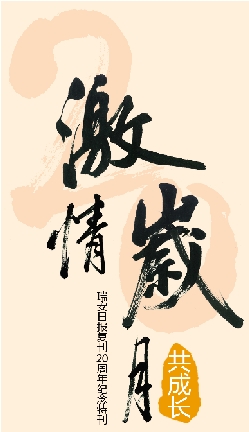 20
激情
歲月
瑞安日报复刊20周年纪念特刊
共成长